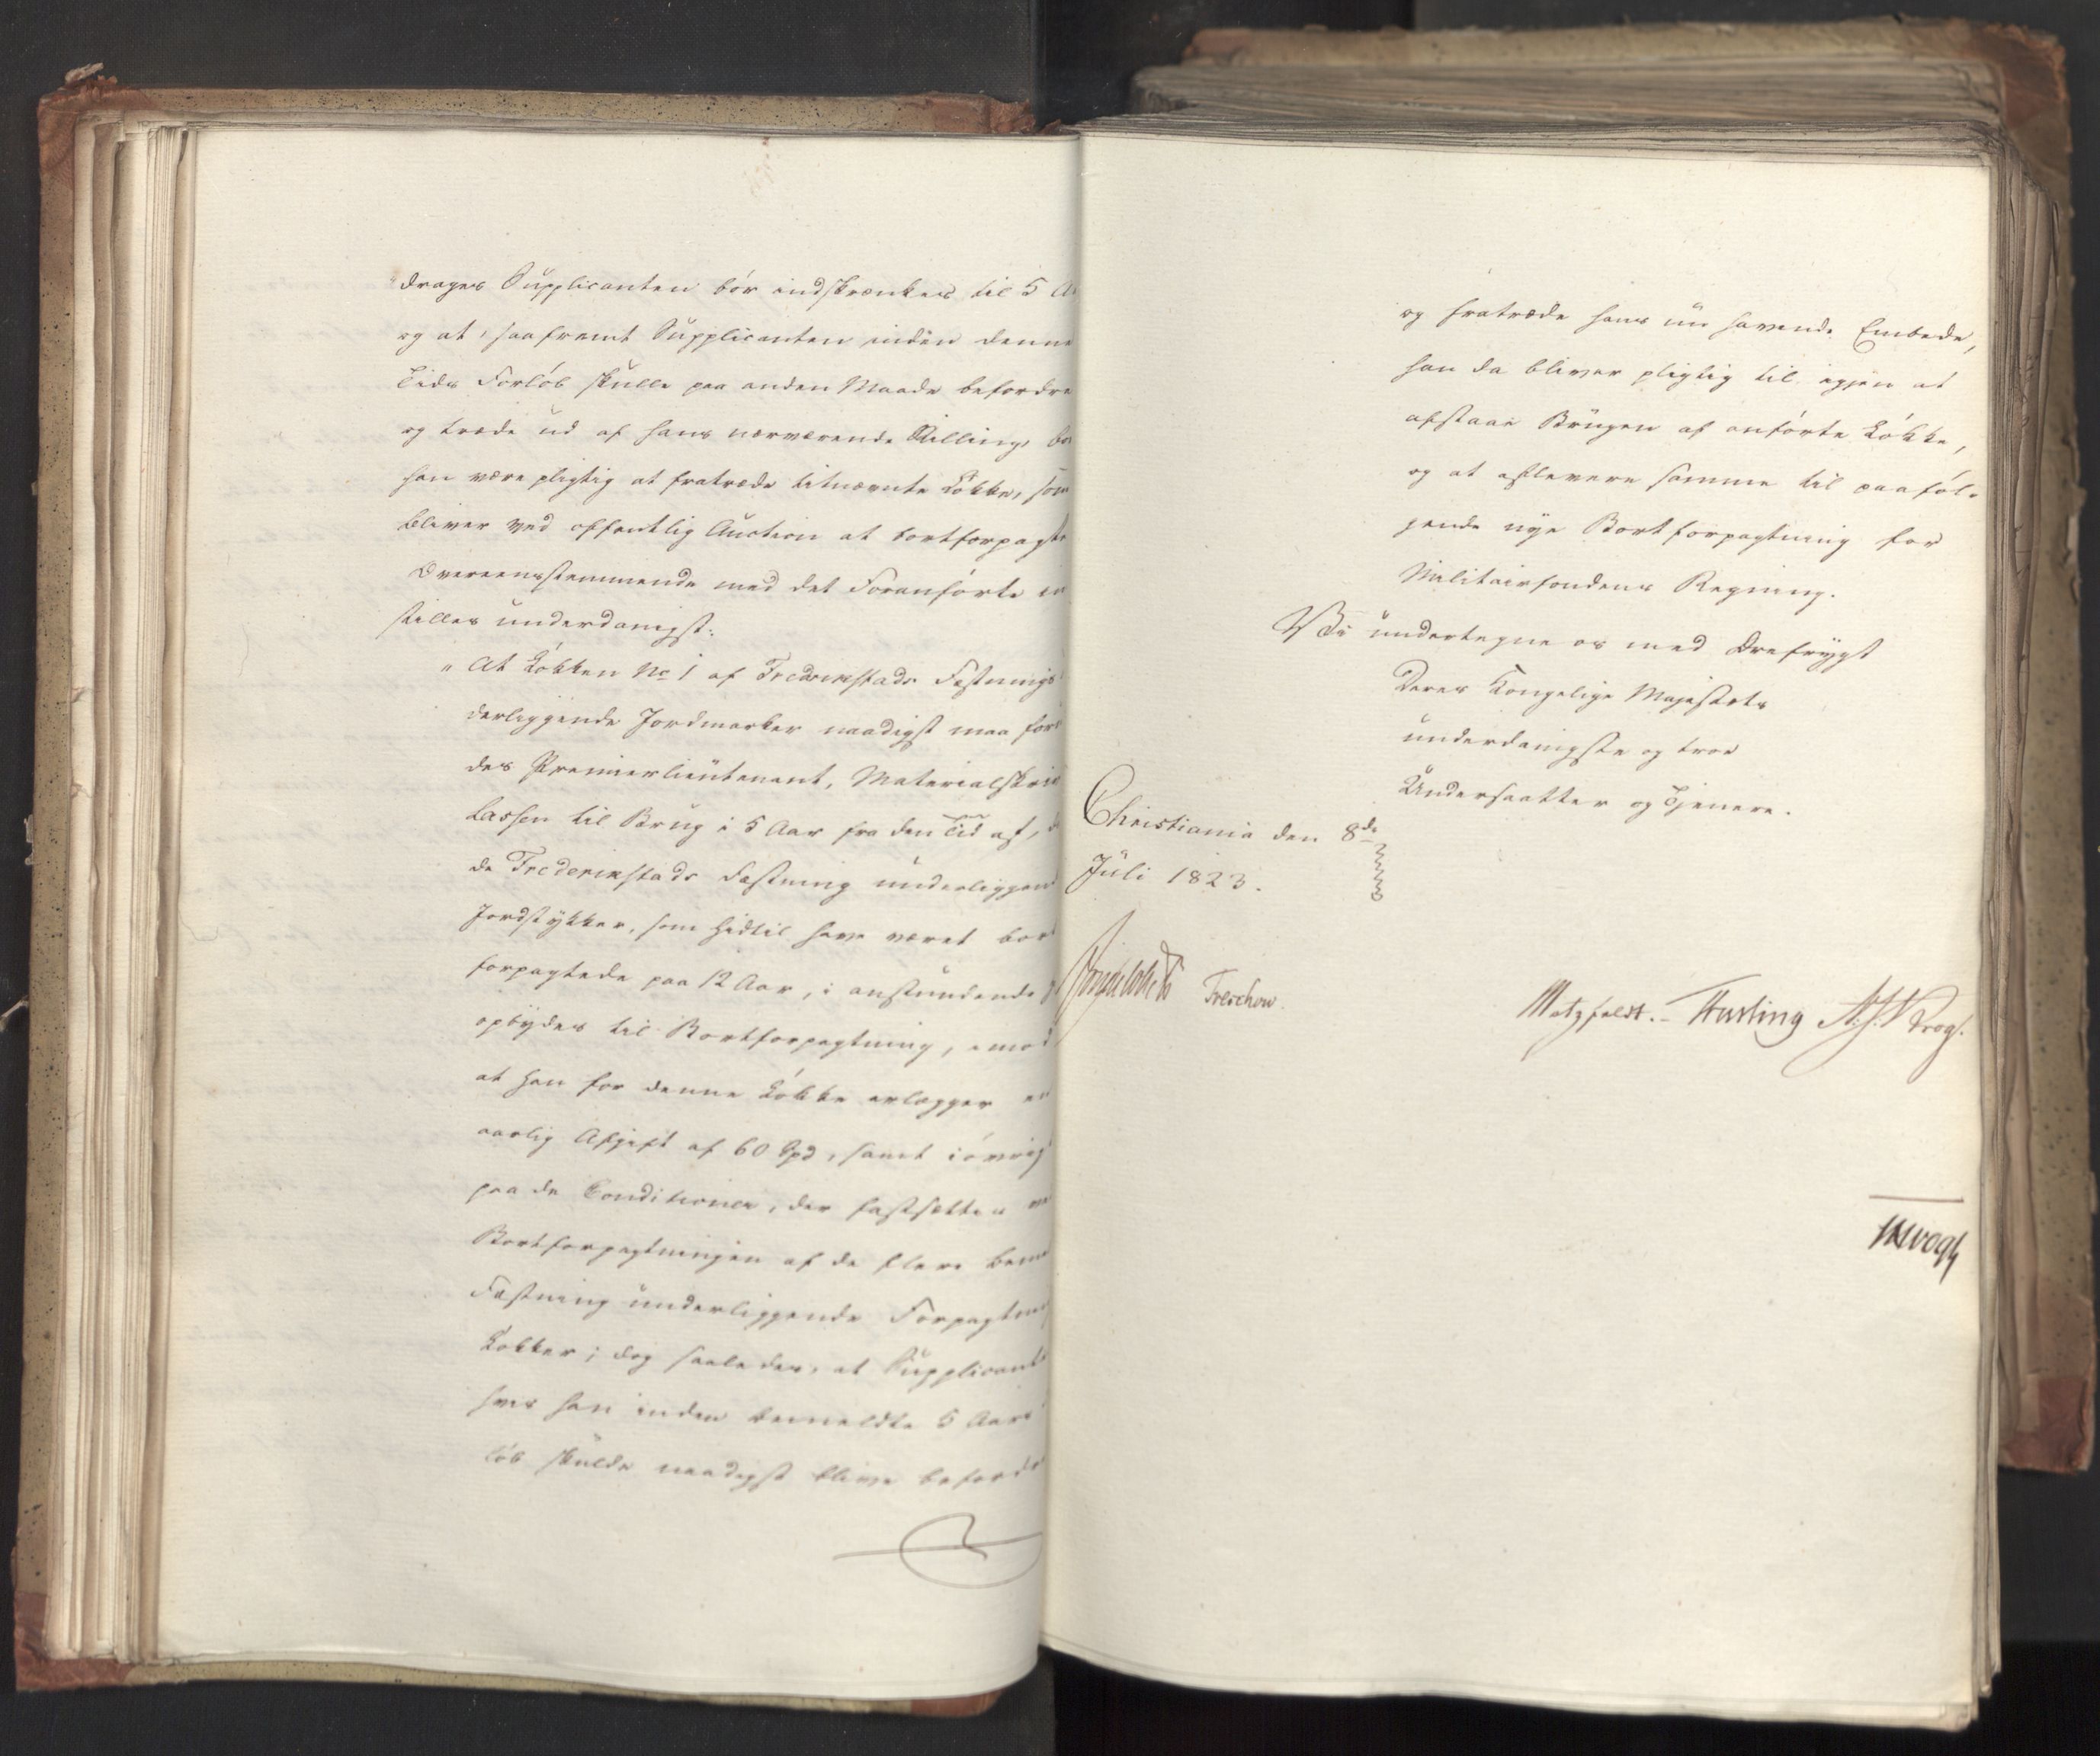 drages Supplicanten bör indskrænkes til 5 A
og at, saafremt Supplicanten inden denne
Tids Forlöb skulle paa anden Maade befordre
og træde ud af hans nærværende Stilling, bö
han være pligtig at fratræde bemeldte Lökke, som
bliver ved offentlig Auction at bortforpagte
Overeensstemmende med det Foranförte in
stilles underdanigst:
"At Lökken No 1 af Fredrikstads Fæstnings
derliggende Jordmarker naadigst maa for
des Premierlieutenant, Materialskriv
Lassen til Brug i 5 Aar fra den Tid af, 
de Frederikstads Fæstning underliggen
Jordstykker, som hidtil have været bort
forpagtede paa 12 Aar, i anstundende
opbydes til Bortforpagtning, imod
at han for denne Lökke erlægger en
aarlig Afgift af 60 Spd, samt iövrigt
paa de Conditioner, der fastsættes ve
Bortforpagtningen af de flere bem
Fæstning underliggende Forpagtning
Lökker; dog saaledes, at Supplicante
hvis han inden bemeldte 5 Aars
löb skulde naadigst blive befordre
og fratræde hans nu havende Embede,
han da bliver pligtig til igjen at
afstaae Brugen af anförte Lökke,
og at aflevere samme til paaföl-
gende nye Bortforpagtning for
Militairfondens Regning.
Vi undertegne os med Ærefrygt
Deres Kongelige Majestæts
underdanigste og troe
Undersaatter og Tjenere.
Christiania den 8de
Juli 1823.
Treschow. Motzfeldt. Fasting